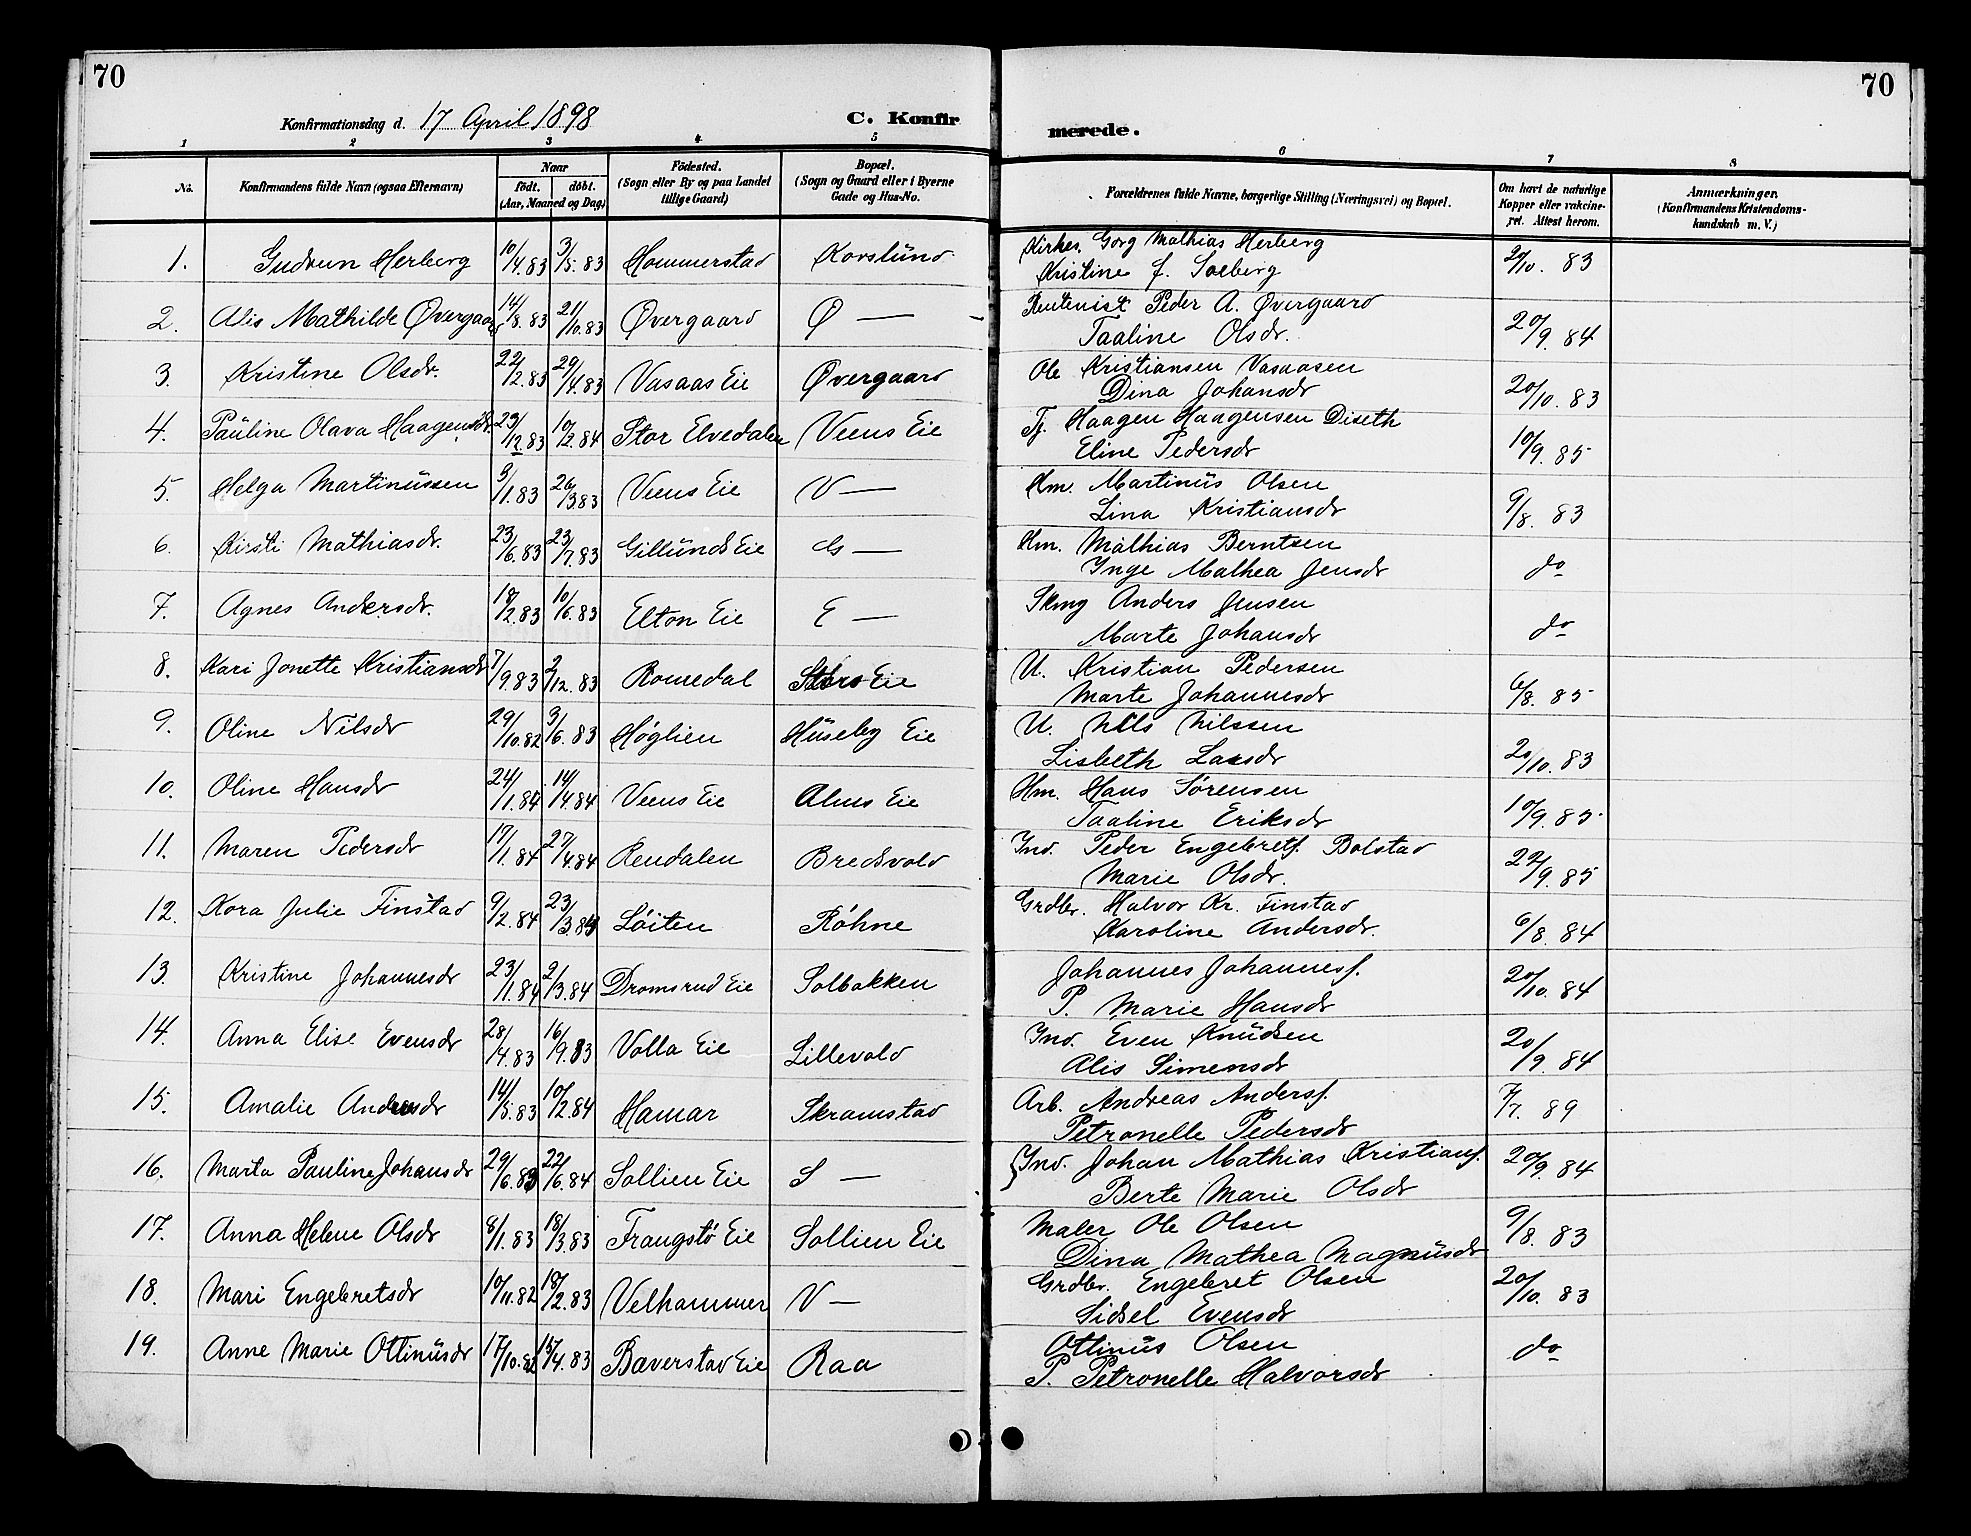 70
70
Konfirmationsdag d. 17 April 1898
C. Konfir
merede.
1 2 3 4 5 6 7 8
No. Konfirmandens fulde Navn (ogsaa Efternavn) Naar født. døbt. (Aar, Maaned og Dag) Fødested. (Sogn eller By og paa Landet tillige Gaard) Bopæl. (Sogn og Gaard eller i Byerne Gade og Hus-No. Forældrenes fulde Navne, borgerlige Stilling (Næringsvei) og Bopæl. Om havt de naturlige Kopper eller vaccineret. Attest herom. Anmærkninger. (Konfirmandens Kristendomskundskab m. V.)
1. Gudrun Herberg 10/4.83 3/5.83 Hommerstad Korslund Kirkes. Georg Mathias Herberg 2/10. 83
Kristine f. Soeberg
2. Alis Mathilde Øvergaard 14/8.83 21/10.83 Øvergaard Ø — Peder A. Øvergaard 20/9. 84
Taaline Olsdr.
3. Kristine Olsdr. 22/2.83 29/4.83 Vasaas Eie Øvergaard Ole Kristiansen Vasaasen 20/10. 83
Dina Johansdr
4. Pauline Olava Haagensdr. 23/12.83 10/2.84 Stor Elvedalen Veens Eie Tj. Haagen Haagensen Diseth 10/9. 85
Eline Pedersdr
5. Helga Martinussen 3/1.83 26/3.83 Veens Eie V — Hm. Martinus Olsen 9/8. 83
Lina Kristiansdr
6. Kirsti Mathiasdr. 23/6.83 23/7.83 Gillunds Eie G — Hm. Mathias Berntsen do
Inge Mathea Jensdr
7. Agnes Andersdr. 18/2.83 10/6.83 Elton Eie E — Anders Jensen do
Marte Johansdr
8. Kari Jonette Kristiansdr 7/9.83 2/12.83 Romedal Eie U. Kristian Pedersen 6/8. 85
Marte Johannesdr
9. Oline Nilsdr 29/10.82 3/6.83 Høglien Huseby Eie U. Nils Nilssen 20/10. 83
Lisbeth Larsdr
10. Oline Hansdr 24/1.84 14/4.84 Veens Eie Alms Eie Hm. Hans Sørensen 10/9. 85
Taaline Eriksdr
11. Maren Pedersdr 17/1.84 27/4.84 Rendalen Bredsvold Ind. Peder Engebrets. Bolstad 22/9. 85
Marie Olsdr.
12. Kora Julie Finstad 9/2.84 23/3.84 Løiten Røhne Grdbr. Halvor Kr. Finstad 6/8. 84
Karoline Andersdr.
13. Kristine Johannesdr 23/1.84 2/3.84 Dromsrud Eie Solbakken Johannes Johannes. 20/10. 84
P. Marie Hansdr
14. Anna Elise Evensdr 28/4.83 16/9.83 Volla Eie Lillevold Ind. Even Knudsen 20/9. 84
Alis Simensdr
15. Amalie Andersdr 14/5.83 10/2.84 Hamar Skramstad Arb. Andreas Anders. 7/7. 89
Petronelle Pedersdr
16. Marta Pauline Johansdr 29/6.83 22/6.84 Sollien Eie S — Ind. Johan Mathias Kristians. 20/9. 84
Berte Marie Olsdr
17. Anna Helene Olsdr 8/1.83 18/3.83 Frangstø Eie Sollien Eie Maler Ole Olsen 9/8. 83
Dina Mathea Magnusdr
18. Mari Engebretsdr 10/11.82 18/2.83 Velhammer V — Grdbr. Engebret Olsen 20/10. 83
Sidsel Evensdr
19. Anne Marie Ottinusdr 17/10.82 15/4.83 Bæverstad Eie Raa Ottinus Olsen do
P. Petronelle Halvorsdr